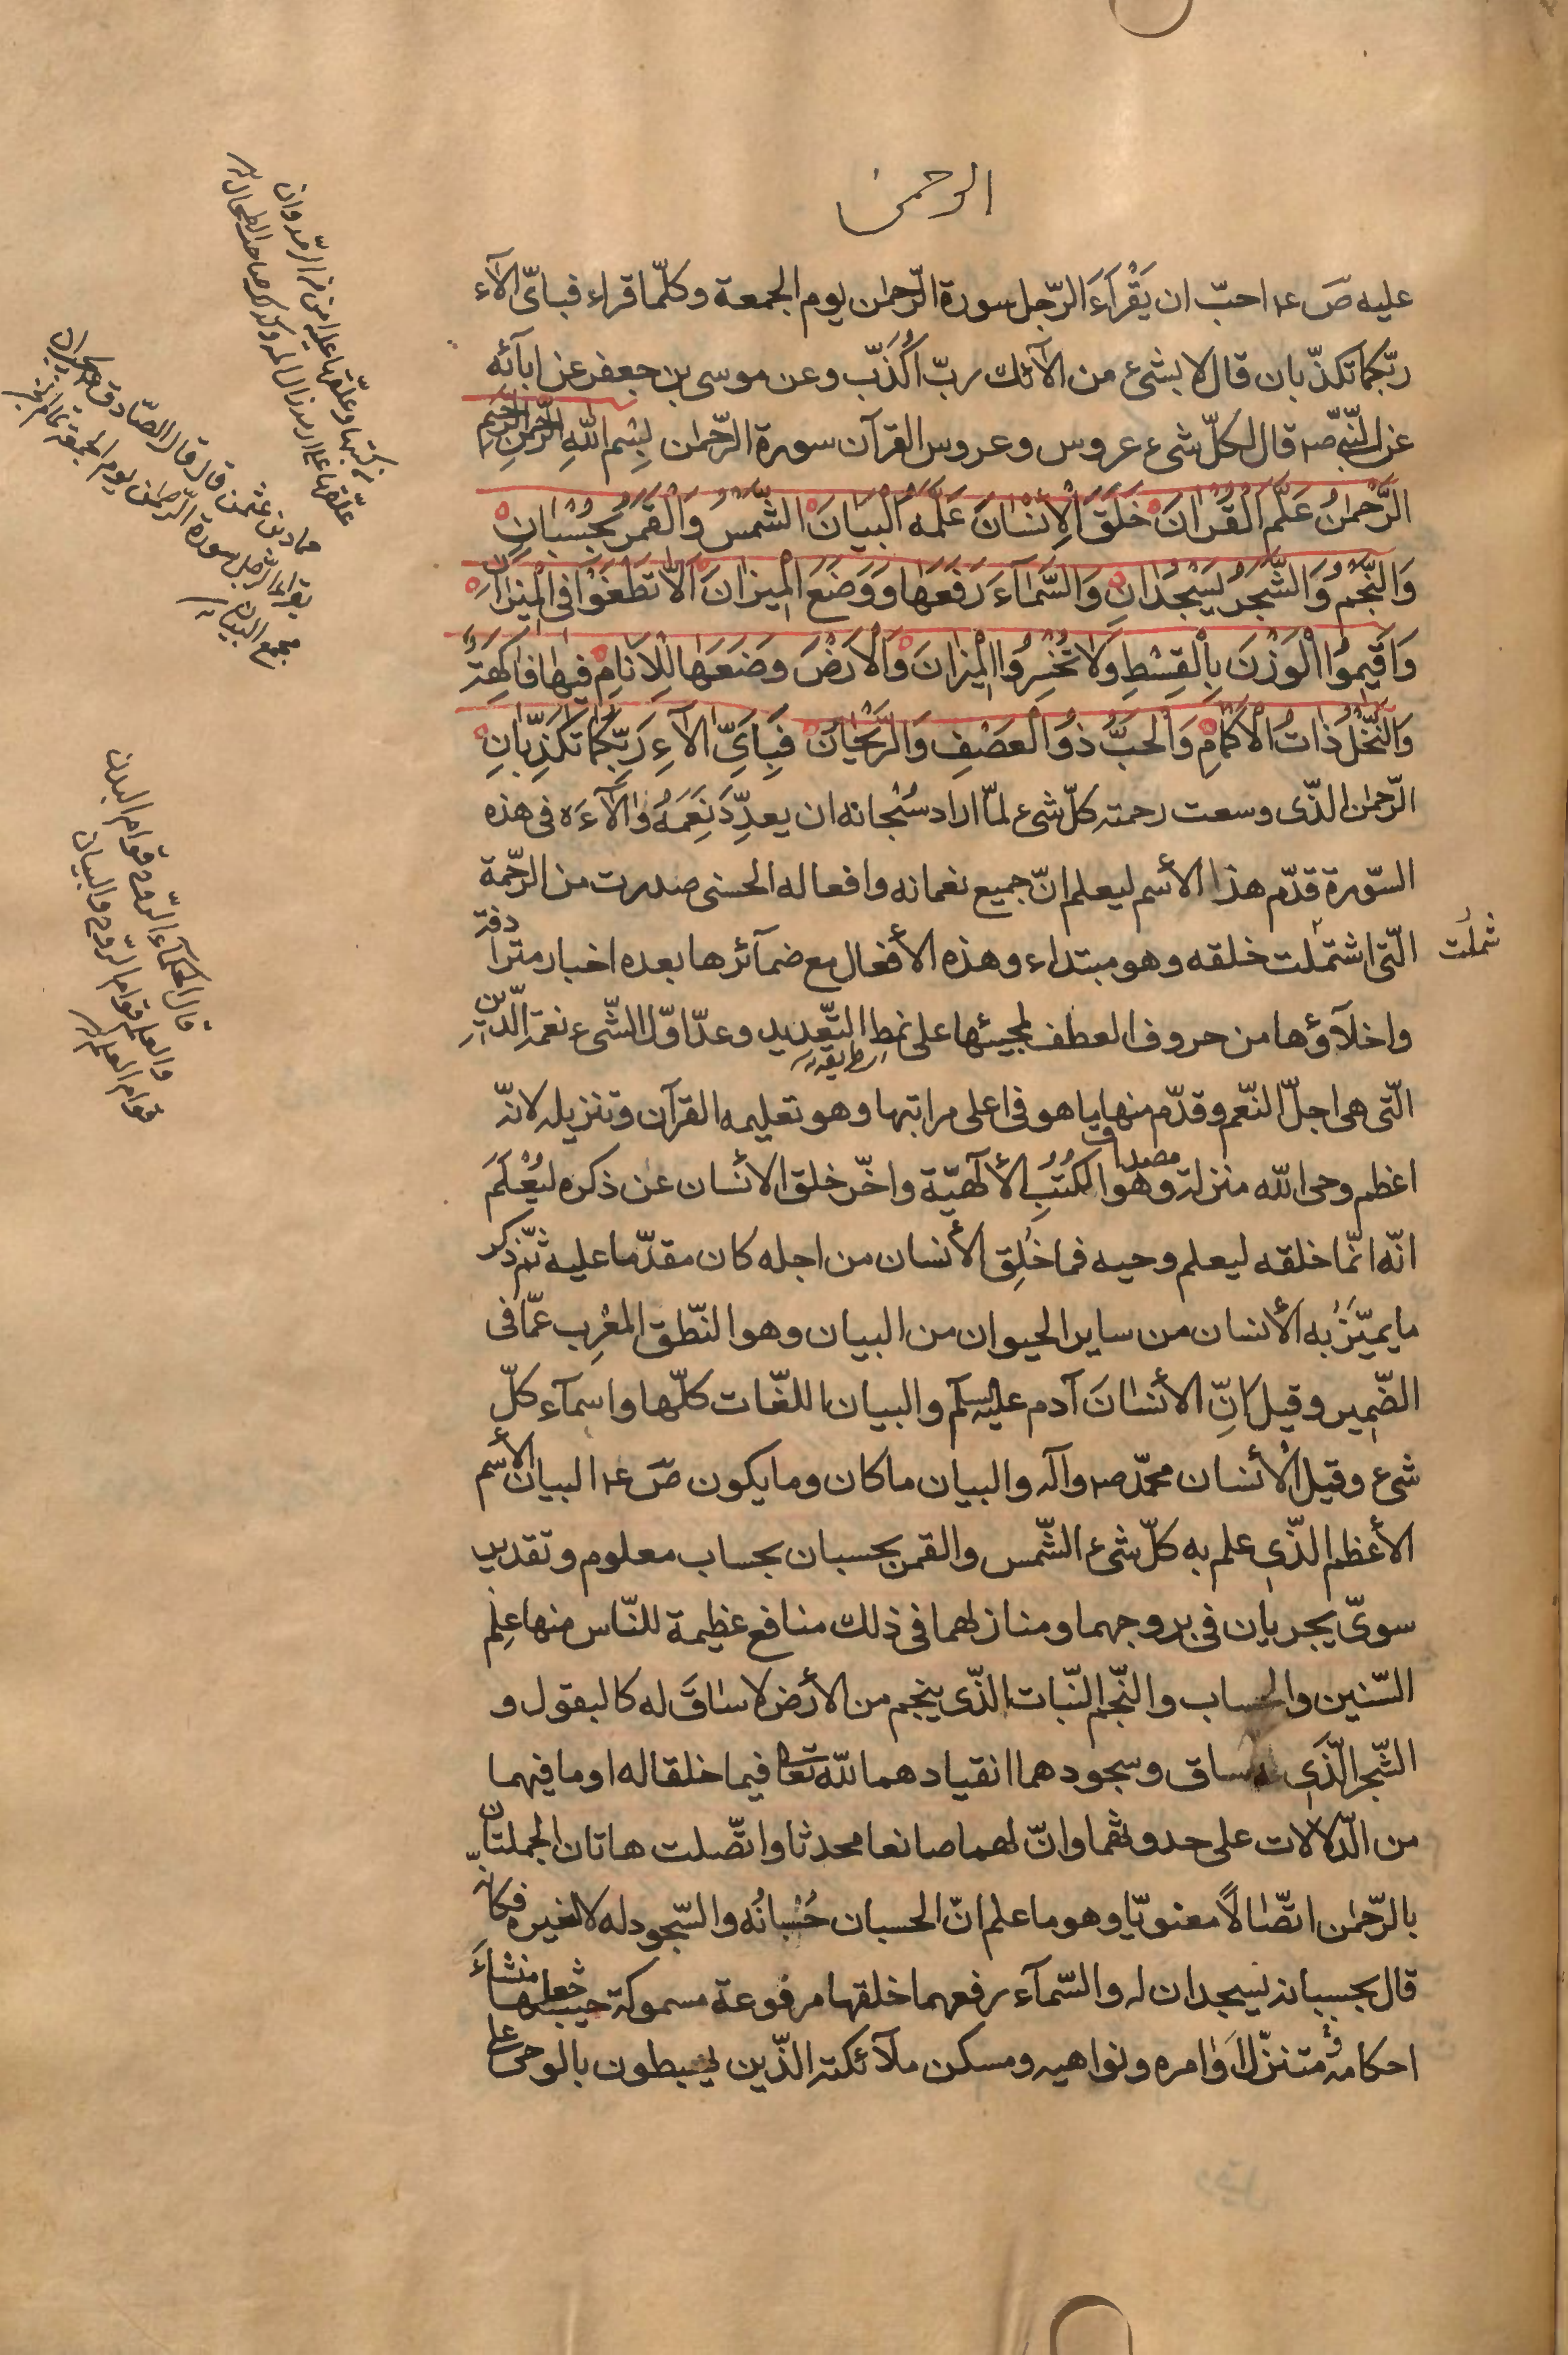 الرحمن
عليه ص ع احبّ ان يَقْرَاَءَ الرّجل سورة الرّحمٰن يوم الجمعة وكلّما قراء فباىّ الآء
ربّكما تكذّبان قال لا بشىء من الآئك ربّ اُكَذّب وعن موسى بن جعفر عن ابآئه
عن النّبىّ ص قال لكلّ شىء عروس وعروس القرآن سورة الرّحمٰن بِسْم اللّهِ الرَّحْمٰنِ الرَّحيم
الرَّحْمٰنُ عَلَّمَ الْقُرْاٰنَ خَلَقَ الْاِنْسٰانَ عَلَّمَهُ الْبَيٰانَ الشَّمْسُ وَالْقَمَرُ بِحُسْبٰانٍ
وَالنَّجْمُ وَالشَّجَرُ يَسْجُدٰانِ وَالسَّمٰآءَ رَفَعَهٰا وَوَضَعَ الْمِيزٰانَ اَلّٰا تَطْغَوْا فِى الْمِيْزٰانِ
وَاَقيمُوا الْوَزْنَ بِالْقِسْطِ وَلٰا تُخْسِرُوا الْمِيزٰانَ وَالْاَرْضَ وَضَعَهٰا لِلْاَنٰامِ فيهٰا فٰاكِهَةٌ
وَالنَّخْلُ ذٰاتُ الْاَكْمٰامِ وَالْحَبُّ ذُو الْعَصْفِ وَالرَّيْحٰانُ فَبِاَىِّ الآءِ رَبِّكُمٰا تُكَذِّبٰانِ
الرّحمٰن الّذى وسعت رحمته كلّ شىء لمّا اراد سُبْحانه ان يعدِّدَ نِعَمَهُ وَالآءَه فى هذه
السّورة قدّم هذا الأسم ليعلم انّ جميع نعمائه وافعاله الحسنى صدرت من الرّحمة
الّتى اشتملت خلقه وهو مبتداء وهذه الأفعال مع ضمآئرها بعده اخبار مترادفة
شملت
واخلآؤها من حروف العطف لمجيئها على نمط التّعديد وعدّ اوّل الشّىء نعمة الدّين
طريقه
الّتى هى اجلّ النّعم وقدّم منها ما هو فى اعلى مراتبها وهو تعليمه القرآن وتنزيله لانّه
اعظم وحى اللّه منزلة وهو مصداق الكُتُبِ الألهيّة واخّر خلق الانسان عن ذكره ليُعْلَمَ
انّه انّما خلقه ليعلم وحيه فما خُلِق الأنسان من اجله كان مقدّما عليه ثمّ ذكر
ما يميّزُ به الأنسان من ساير الحيوان من البيان وهو النّطق المعْرِب عمّا فى
الضّمير وقيل انّ الأنسٰانَ آدم عليه السلم والبيان اللغّات كلّها واسمآء كلّ
شىء وقيل الأنسان محمّد ص وآله والبيان ما كان وما يكون ص ع البيان الأسم
الأعظم الّذى علم به كلّ شىء الشّمس والقمر بحسبان بحساب معلوم وتقدير
سوىّ يجريان فى بروجهما ومنازلهما فى ذلك منافع عظيمة للنّاس منها عِلْم
السّنين والحساب والنّجم النّبات الّذى ينجم من الأرض لا سٰاقَ له كالبقول و
الشّجر الّذى له ساق وسجودهما انقيادهما للّه تعا فيما خلقا له او ما فيهما
من الدّلالات على حدوثهما وانّ لهما صانعا محدثا واتّصلت هاتان الجملتان
بالرّحمٰن اتّصٰالاً معنويّا وهو ما علم انّ الحسبان حُسْبانُه والسّجود له لا لغيره فكانّه
قال بحسبانه يسجدان له والسّمآء رفعهما خلقها مرفوعة مسموكة حيث جعلها منشاءَ
احكامه ومتنزّل اَوٰامره ونواهيه ومسكن ملآئكته الّذين يهبطون بالوحى على
حماد بن عثمن قال قال الصّادق
يقراء الرّجل سورة الرّحمٰن يوم الجمعة
مجمع البيان
قال الحكمآء الرّوح قوام البدن
والعلم قوام الرّوح والبيان
قوام العلم